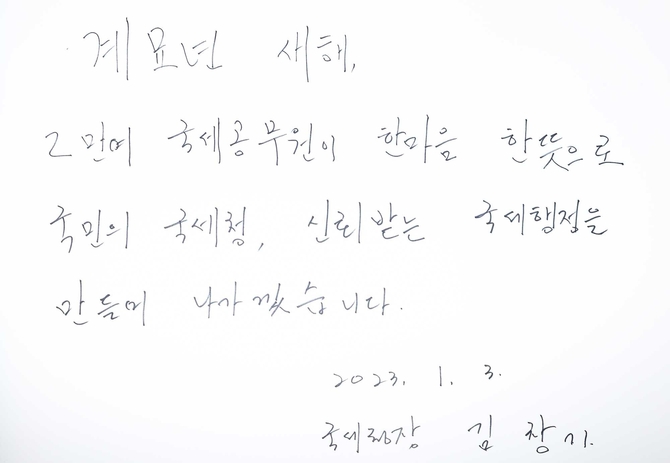 계묘년 새해,
2만여 국세공무원이 한마음 한뜻으로
국민의 국세청, 신뢰받는 국세행정을
만들어 나가겠습니다.
2023. 1. 3.
국세청장 김창기.